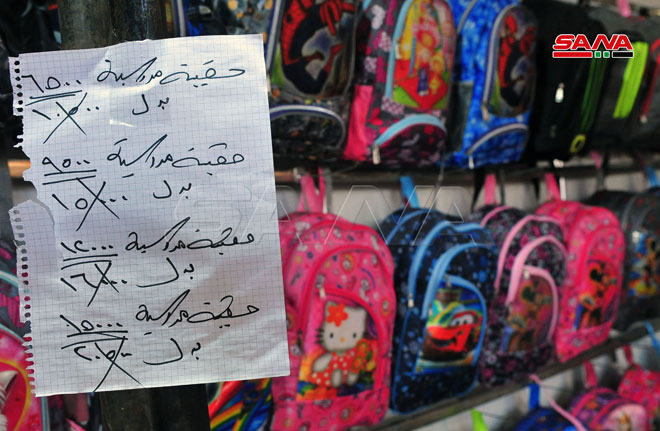 SANA
حقيبة مدرسية ٦٥٠٠
بدل ١٠٥٠٠
حقيبة مدرسية ٩٥٠٠
بدل ١٥٠٠٠
حقيبة مدرسية ١٢٠٠٠
بدل ١٦٠٠٠
حقيبة مدرسية ١٥٠٠٠
بدل ٢٠٥٠٠
SANA